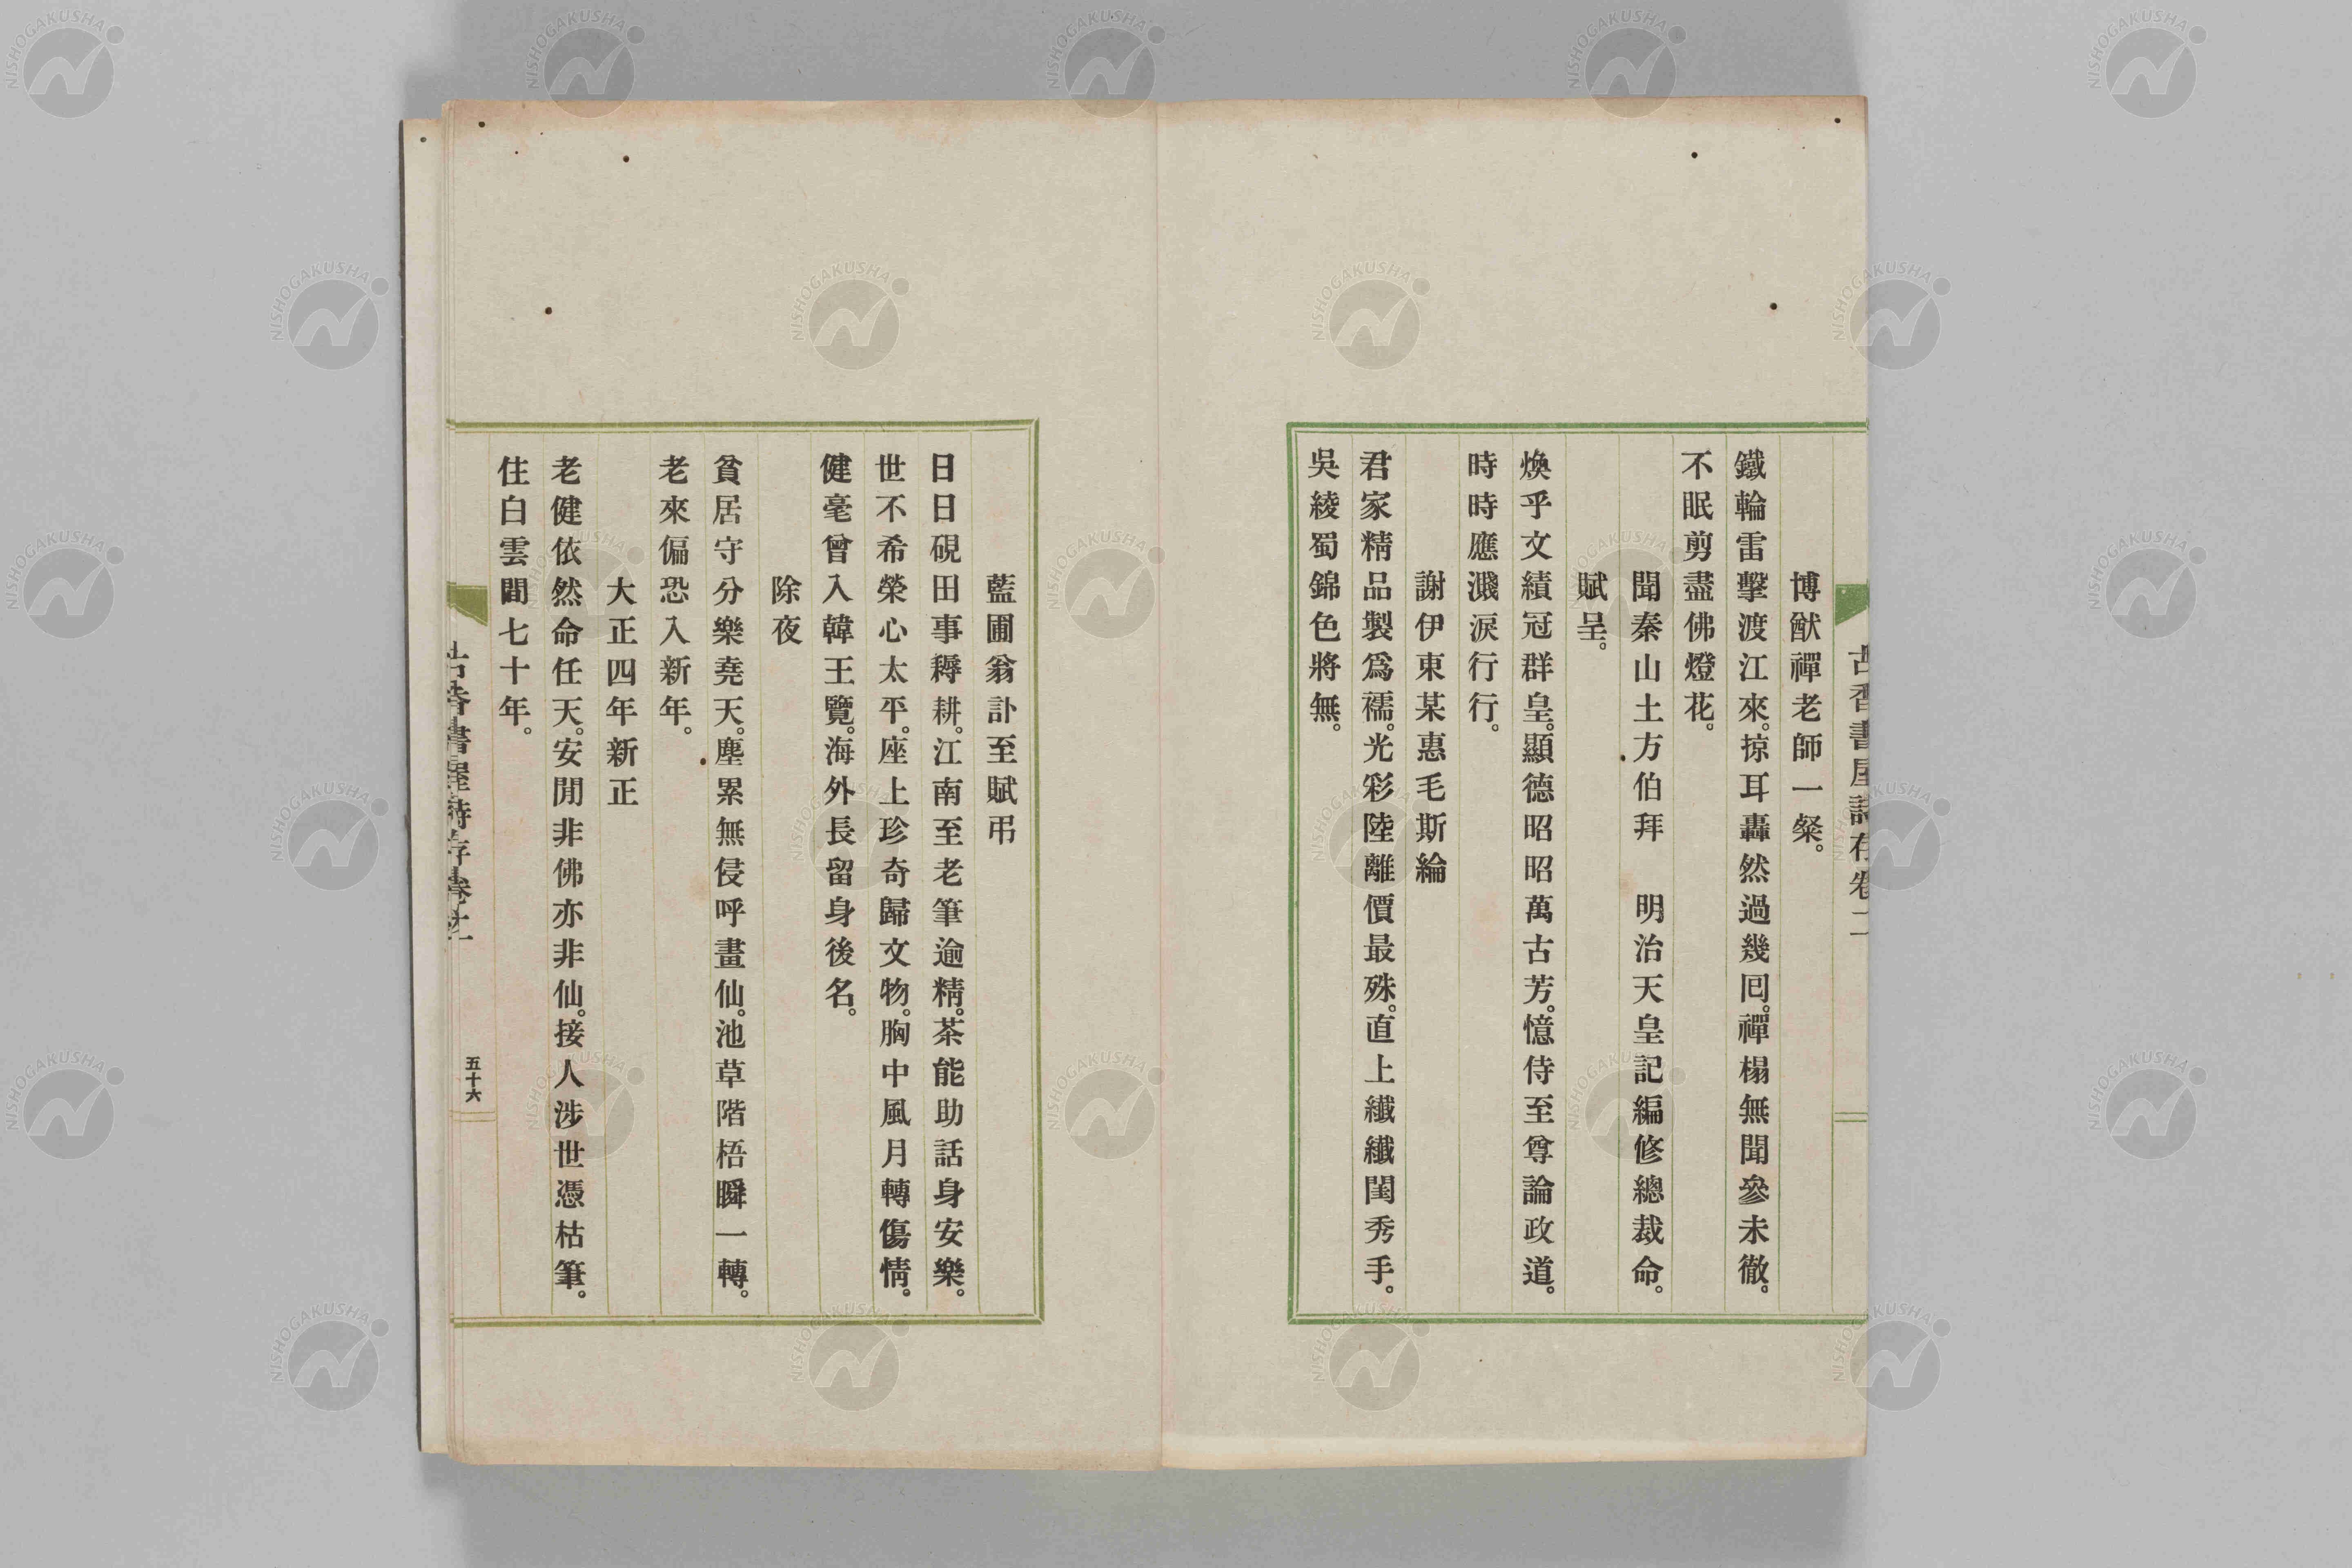 古香書屋詩存卷二
博猷禪老師一粲。
鐵輪雷擊渡江來。掠耳轟然過幾囘。禪榻無聞參未徹。
不眠剪盡佛燈花。
聞秦山土方伯拜　明治天皇記編修總裁命。
賦呈。
煥乎文績冠群皇。顯德昭昭萬古芳。憶侍至尊論政道。
時時應濺淚行行。
謝伊東某惠毛斯綸
君家精品製爲襦。光彩陸離價最殊。直上纖纖閨秀手。
吳綾蜀錦色將無。
藍圃翁訃至賦弔
日日硯田事耨耕。江南至老筆逾精。茶能助話身安樂。
世不希榮心太平。座上珍奇歸文物。胸中風月轉傷情。
健毫曾入韓王覽。海外長留身後名。
除夜
貧居守分樂堯天。塵累無侵呼畫仙。池草階梧瞬一轉。
老來偏恐入新年。
大正四年新正
老健依然命任天。安閒非佛亦非仙。接人涉世憑枯筆。
住白雲間七十年。
古香書屋詩存卷
五十六
NISHOGAKUSHA